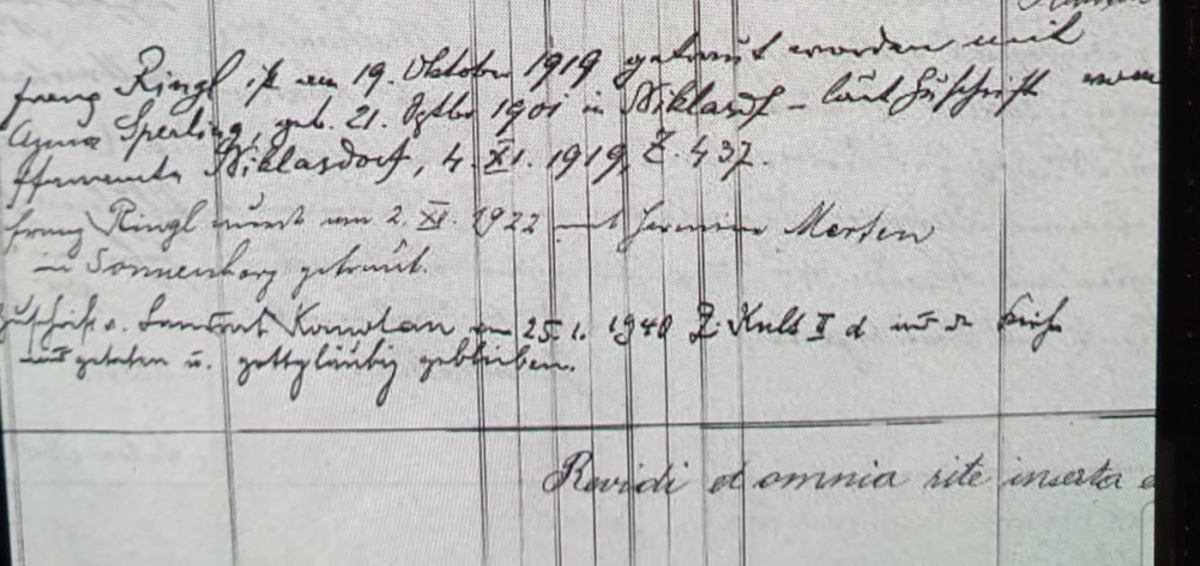 Franz Ringl ist am 19. Oktober 1919 getraut worden mit
Anna Sperling, geb. 21. 1901 in Niklasdf – laut Zuschrift vom
Pfarramte Niklasdorf, 4. XI. 1919, Z. 437.
Franz Ringl wurde am 2. XI. 1922 mit Hermine Merten
in Sonnenberg getraut.
Zuschrift v. Landrat am 25. 1. 1940 Z. Kult II d aus der Kirche
ausgetreten u. gottgläubig geblieben.
Revidi et omnia rite inserta